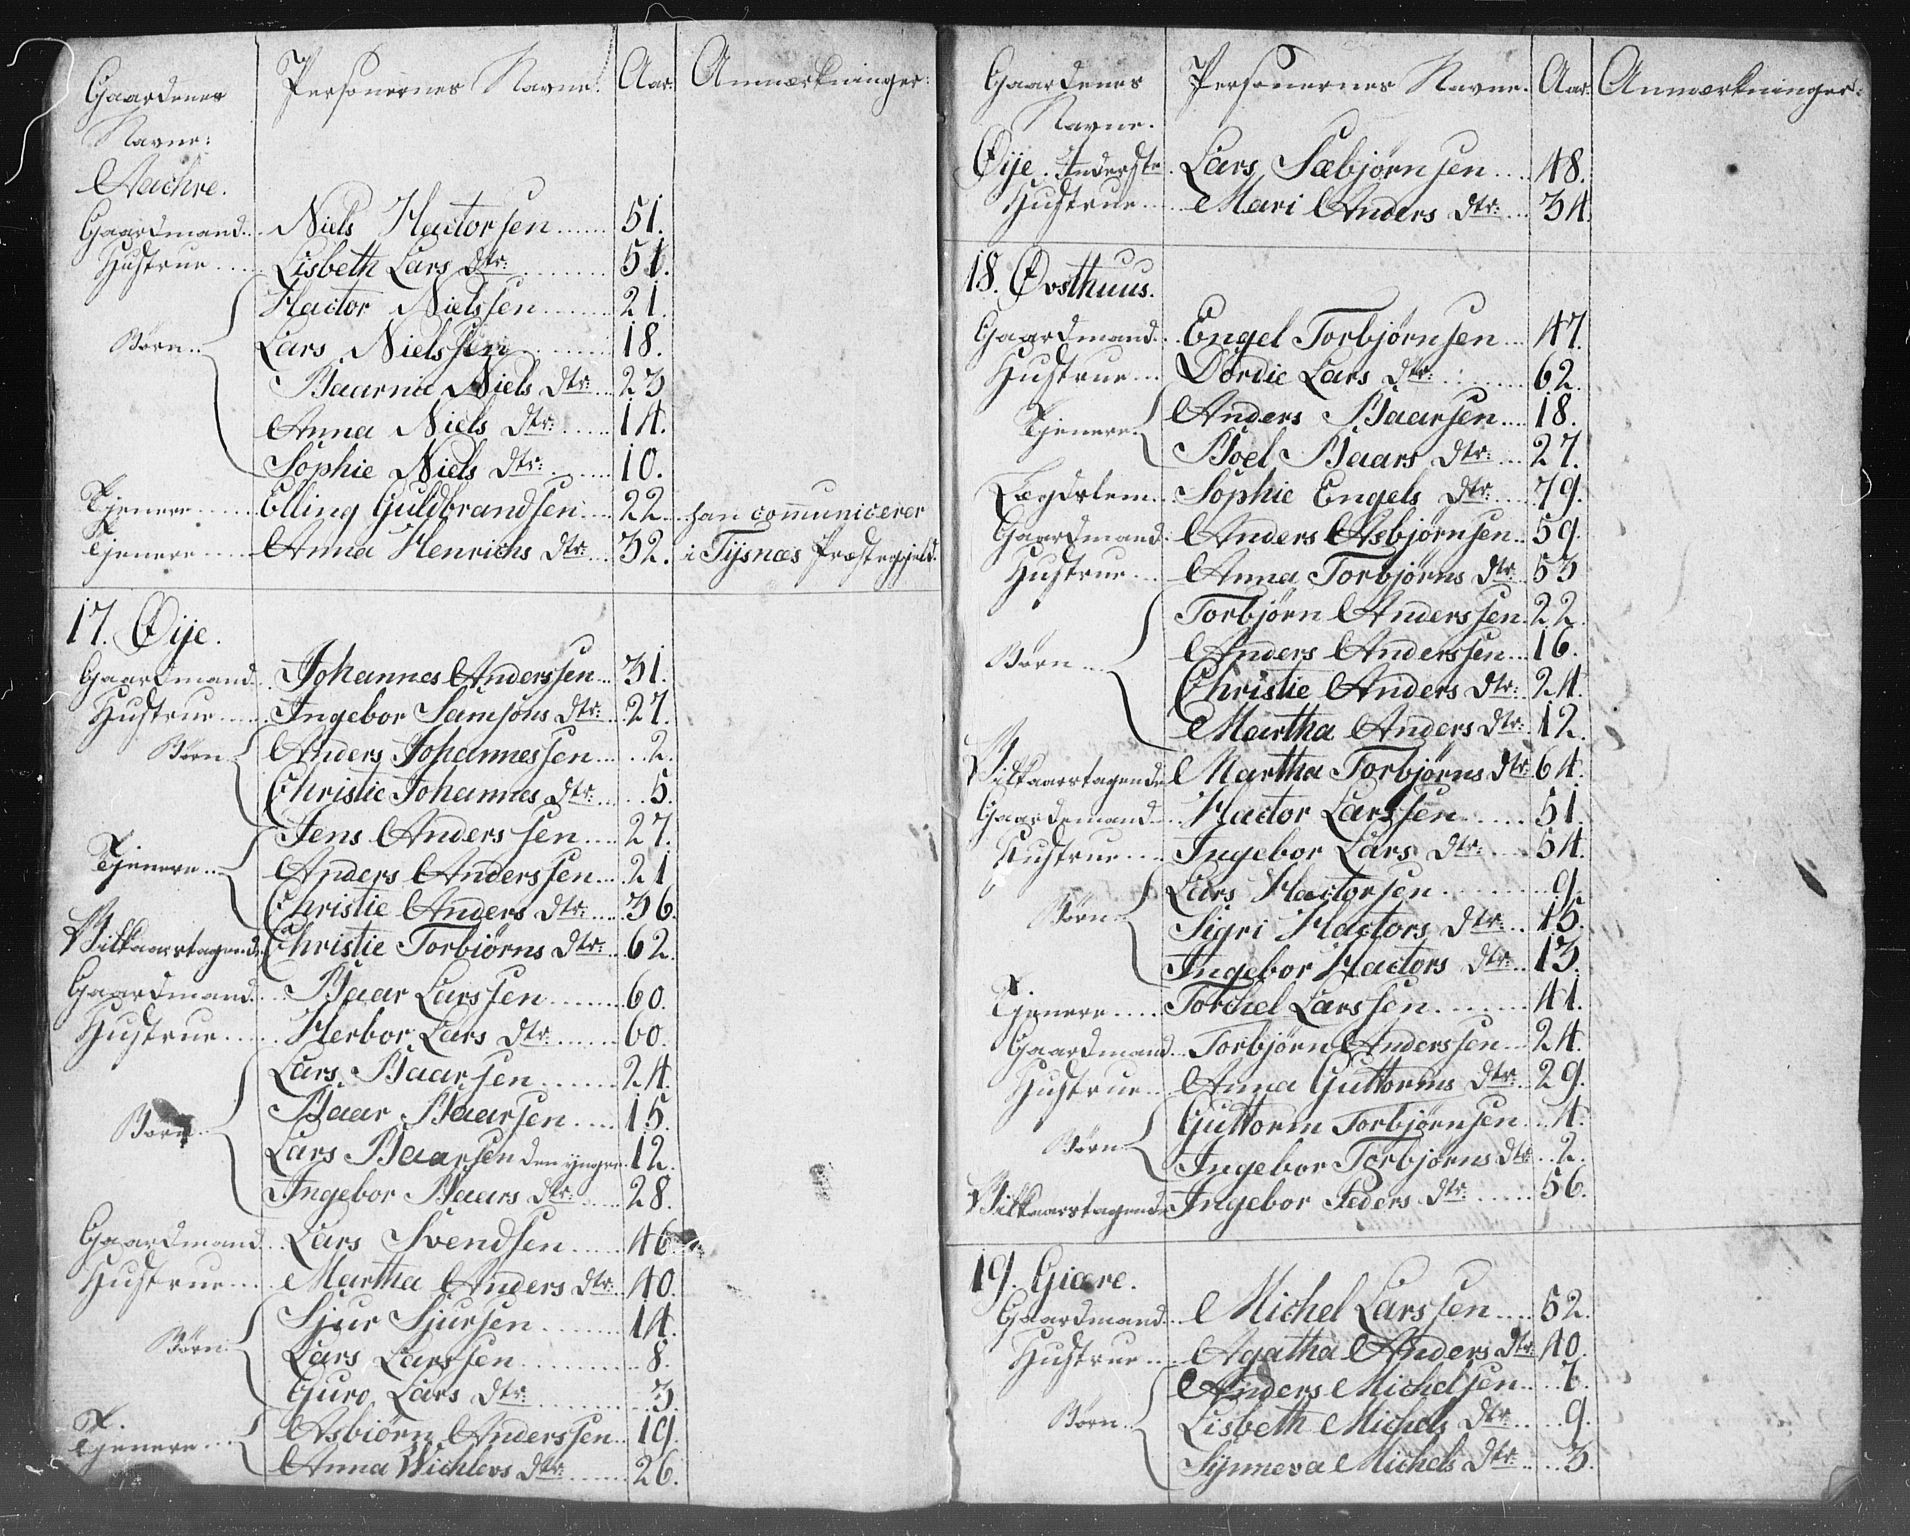 Gaardenes Personernes Navne. Aar. Anmærkninger:
Navne:
Aachre.
Gaardmand... Niels Hactorsen...... 51.
Hustrue.... Lisbeth Lars Dtr:........ 51.
Hactor Nielssen........ 21.
Børn.. Lars Nielssen......... 18.
Baarni Niels Dtr:... 23
Anna Niels Dtr:...... 14.
Sophie Niels Dtr:...... 10.
Tjenere...... Elling Guldbrandsen.... 22... han communicerer
Tjenere...... Anna Henrichs Dtr:... 32. i Tysnæs Præstegjeld.
17. Øije.
Gaardmand.. Johannes Anderssen... 31.
Hustrue..... Ingebor Samsons Dtr:.. 27.
Børn Anders Johannessen..... 2.
Christie Johannes Dtr:..... 5.
Jens Anderssen.... 27.
Tjenere... Anders Anderssen.... 21
Christie Anders Dtr:.... 36.
Vilkaarstagende Christie Torbiørns Dtr:.. 62.
Gaardmand... Baar Larssen....... 60.
Hustrue..... Herbor Lars Dtr:...... 60.
Lars Baarsen....... 24.
Børn.. Baar Baarsen..... 15.
Lars Baarsen den yngre. 12.
Ingebor Baars Dtr:..... 28.
Gaardmand.. Lars Svendsen..... 46.
Hustrue.... Martha Anders Dtr:.. 40.
Sjur Sjursen........ 14.
Børn. Lars Larssen.......... 8.
Guro Lars Dtr:.......... 3.
Tjenere... Asbiørn Anderssen.. 19.
Anna Wichlevs Dtr:...... 26.
Gaardenes Personernes Navne. Aar. Anmærkninger:
Navne.
Øije. Lars Sæbjørnsen.... 48.
Hustrue.... Mari Anders Dtr:... 34.
18. Øvsthuus.
Gaardmand.. Engel Torbjørnsen... 47.
Hustrue... Dordie Lars Dtr:....... 62.
Tjenere. Anders Baarsen.... 18.
Boel Baars Dtr:... 27.
Lægdslem... Sophie Engels Dtr:.... 79.
Gaardmand. Anders Asbjørnsen.. 59.
Hustrue... Anna Torbjørns Dtr: 53
Torbjørn Anderssen 22.
Børn... Anders Anderssen... 16.
Christie Anders Dtr: 24.
Martha Anders Dtr: 12.
Vilkaarstagende Martha Torbjørns Dtr: 64.
Gaardmand... Hactor Larssen...... 51.
Hustrue.... Ingebor Lars Dtr:.... 54.
Lars Hactorsen......... 9.
Børn.. Sigri Hactors Dtr:... 15.
Ingebor Hactors Dtr:... 13.
Tjenere..... Torchel Larssen....... 41.
Gaardmand.. Torbjørn Anderssen... 24.
Hustrue... Anna Guttorms Dtr:.. 29.
Guttorm Torbjørnsen... 4.
Børn.. Ingebor Torbjørns Dtr:.. 2.
Vilkaarstagende Ingebor Peders Dtr:...... 56.
19. Giære.
Gaardmand.. Michel Larssen..... 52.
Hustrue.... Agatha Anders Dtr: 40.
Anders Michelsen... 7.
Børn.. Lisbeth Michels Dtr:.... 9.
Synneva Michels Dtr:.... 3.